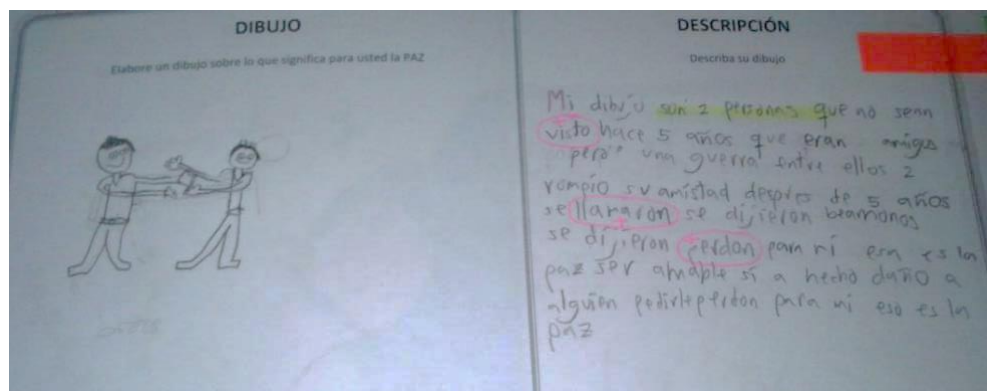 DIBUJO
Elabore un dibujo sobre lo que significa para usted la PAZ
DESCRIPCIÓN
Describa su dibujo
Mi dibujo son 2 personas que no senn
visto hace 5 años que eran amigos
pero una guerra entre ellos 2
rompio su amistad despres de 5 años
se llamaron se dijieron beamonos
se dijieron perdon para mi esa es la
paz ser amable si a hecho daño a
alguien pedirle perdon para mi eso es la
paz